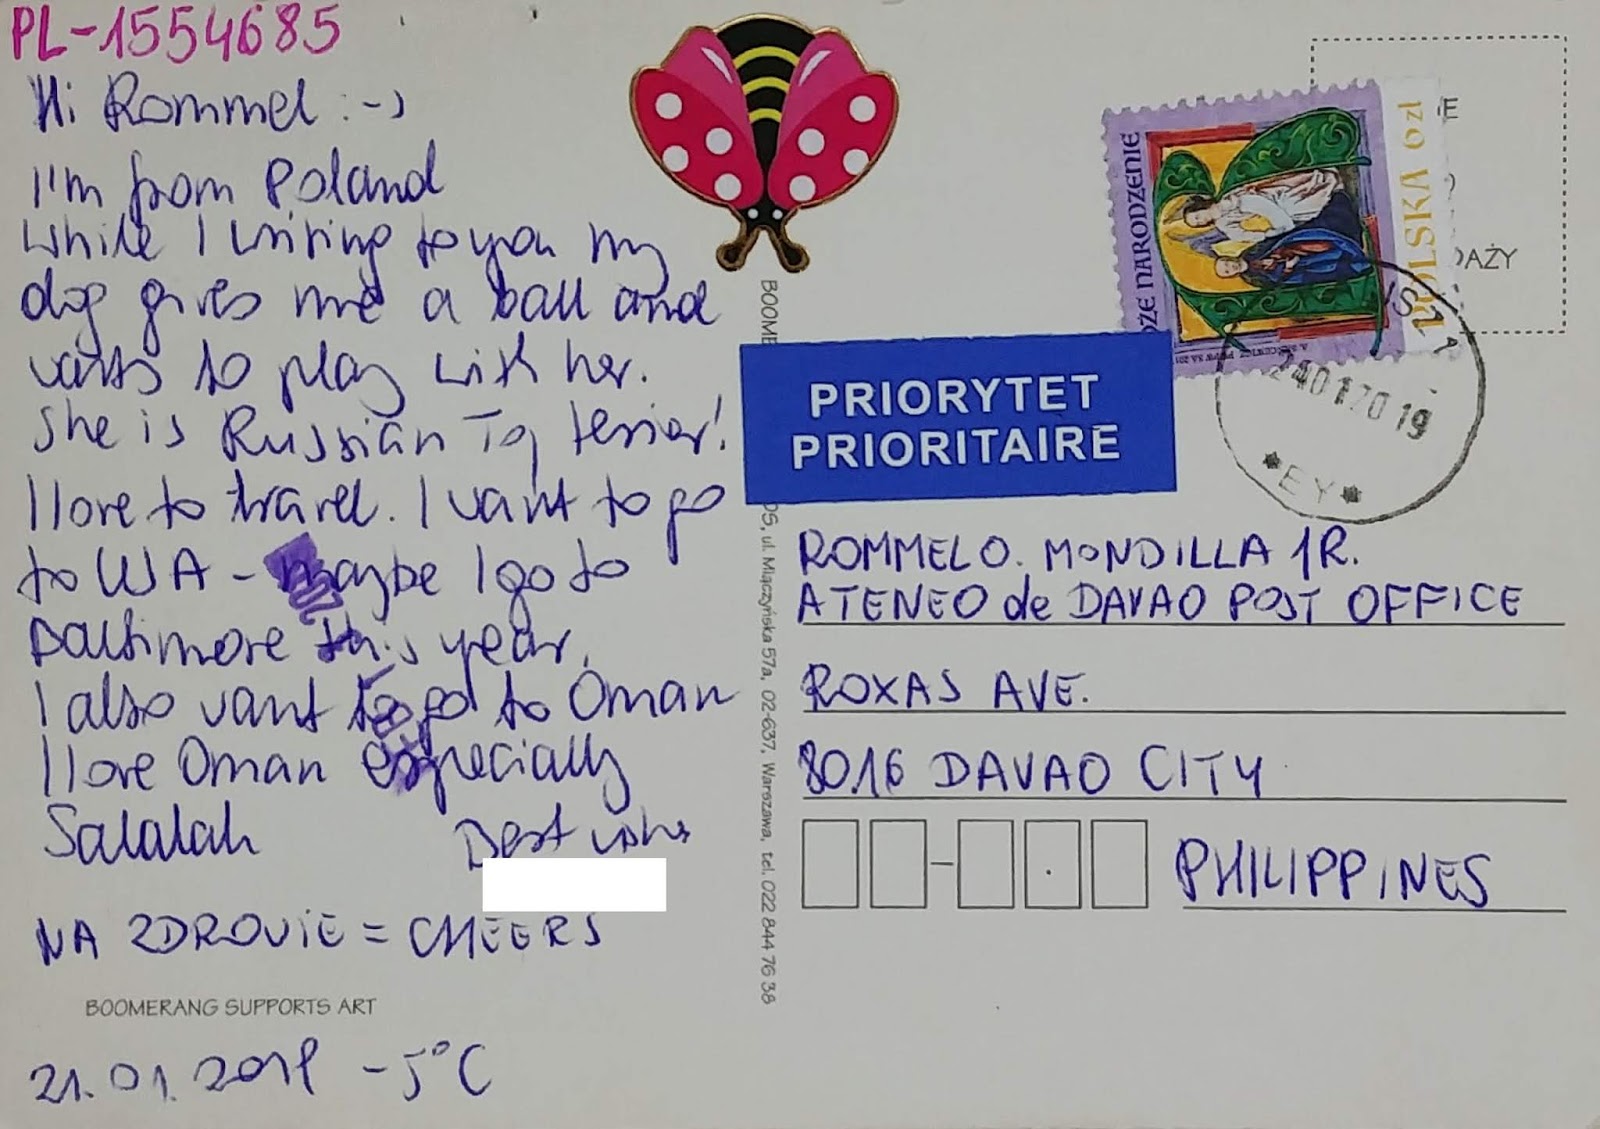 PL-1554685
Hi Rommel :-)
I'm from Poland
While I writing to you my
dog gives me a ball and
wants to play with her.
She is Russian Toy terrier!
I love to travel. I want to go
to USA - maybe I go to
Baltimore this year.
I also want to go to Oman
I love Oman especially
Salalah
Best wishes
NA ZDROWIE = CHEERS
BOOMERANG SUPPORTS ART
21.01.2019 -5°C
ul. Mlączyńska 57a, 02-637, Warszawa, tel. 022 844 76 38
NARODZENIE
POLSKA 6 zł
PRIORYTET
PRIORITAIRE
ROMMEL O. MONDILLA JR.
ATENEO de DAVAO POST OFFICE
ROXAS AVE.
8016 DAVAO CITY
PHILIPPINES